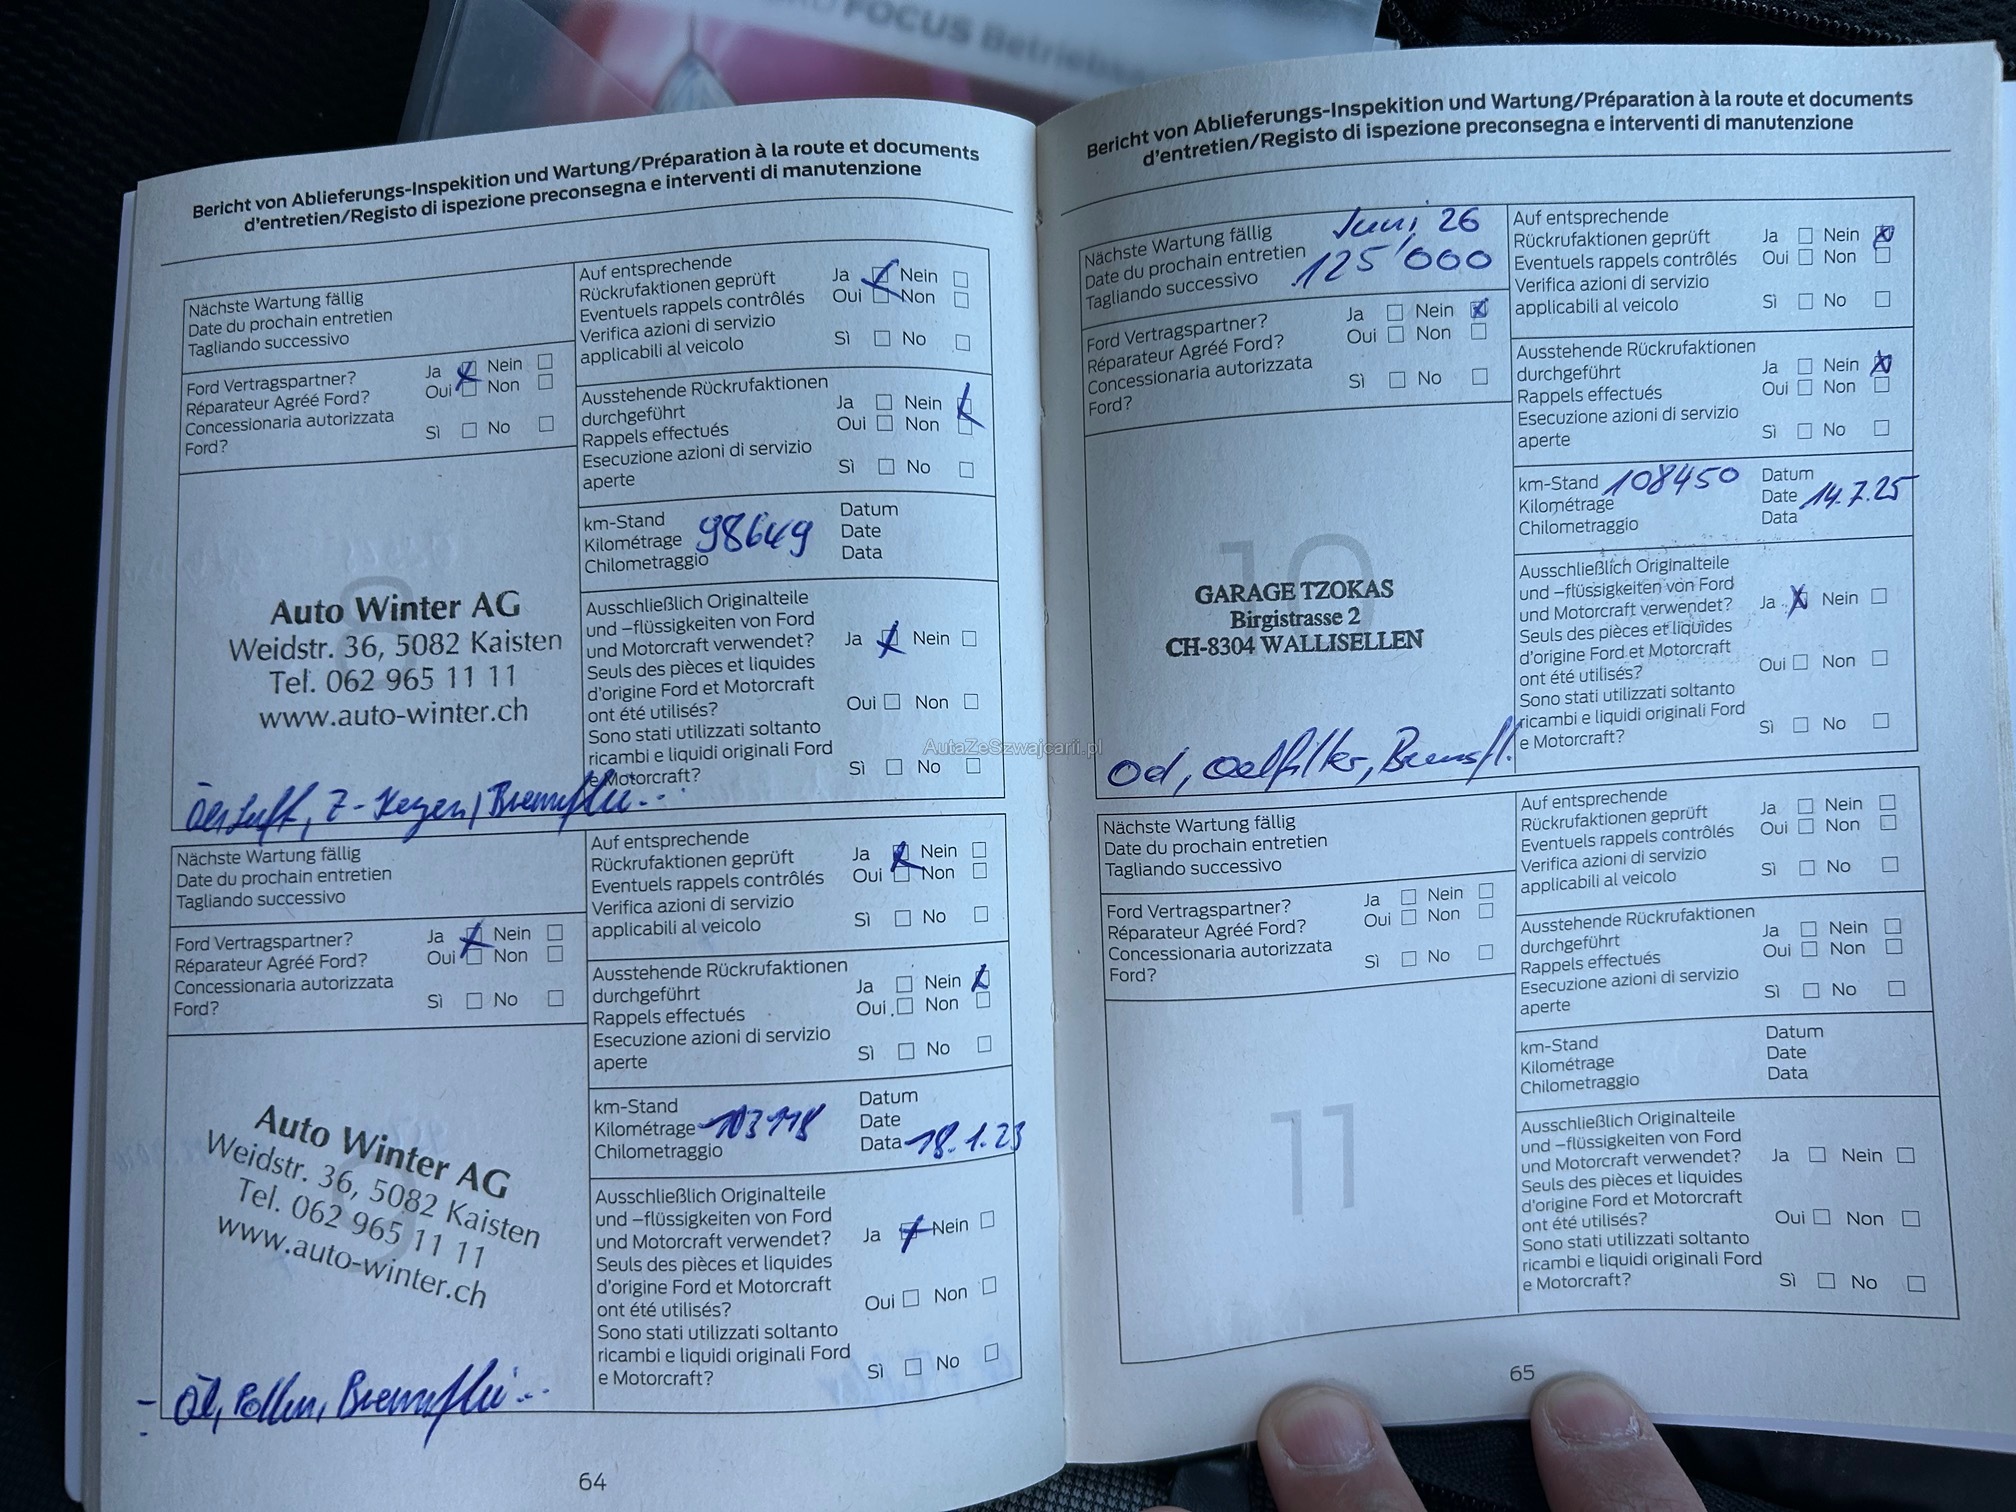 FOCUS Betriebs
Bericht von Ablieferungs-Inspekition und Wartung/Préparation à la route et documents
d'entretien/Registo di ispezione preconsegna e interventi di manutenzione
Nächste Wartung fällig
Date du prochain entretien
Tagliando successivo
Ford Vertragspartner?
Réparateur Agréé Ford?
Concessionaria autorizzata
Ford?
Ja Nein
Oui Non
Sì No
Auto Winter AG
Weidstr. 36, 5082 Kaisten
Tel. 062 965 11 11
www.auto-winter.ch
Auf entsprechende
Rückrufaktionen geprüft
Eventuels rappels contrôlés
Verifica azioni di servizio
applicabili al veicolo
Ja Nein
Oui Non
Sì No
Ausstehende Rückrufaktionen
durchgeführt
Rappels effectués
Esecuzione azioni di servizio
aperte
Ja Nein
Oui Non
Sì No
km-Stand
Kilométrage 98649
Chilometraggio
Datum
Date
Data
Ausschließlich Originalteile
und –flüssigkeiten von Ford
und Motorcraft verwendet?
Seuls des pièces et liquides
d'origine Ford et Motorcraft
ont été utilisés?
Sono stati utilizzati soltanto
ricambi e liquidi originali Ford
e Motorcraft?
Ja Nein
Oui Non
Sì No
Z-Kerzen, Bremsflü...
Nächste Wartung fällig
Date du prochain entretien
Tagliando successivo
Ford Vertragspartner?
Réparateur Agréé Ford?
Concessionaria autorizzata
Ford?
Ja Nein
Oui Non
Sì No
9
Auto Winter AG
Weidstr. 36, 5082 Kaisten
Tel. 062 965 11 11
www.auto-winter.ch
- Öl, Pollen, Bremsflü...
Auf entsprechende
Rückrufaktionen geprüft
Eventuels rappels contrôlés
Verifica azioni di servizio
applicabili al veicolo
Ja Nein
Oui Non
Sì No
Ausstehende Rückrufaktionen
durchgeführt
Rappels effectués
Esecuzione azioni di servizio
aperte
Ja Nein
Oui Non
Sì No
km-Stand
Kilométrage 103118
Chilometraggio
Datum
Date
Data 18.1.23
Ausschließlich Originalteile
und –flüssigkeiten von Ford
und Motorcraft verwendet?
Seuls des pièces et liquides
d'origine Ford et Motorcraft
ont été utilisés?
Sono stati utilizzati soltanto
ricambi e liquidi originali Ford
e Motorcraft?
Ja Nein
Oui Non
Sì No
64
Bericht von Ablieferungs-Inspekition und Wartung/Préparation à la route et documents
d'entretien/Registo di ispezione preconsegna e interventi di manutenzione
Nächste Wartung fällig Juni 26
Date du prochain entretien 125'000
Tagliando successivo
Ford Vertragspartner?
Réparateur Agréé Ford?
Concessionaria autorizzata
Ford?
Ja Nein
Oui Non
Sì No
10
GARAGE TZOKAS
Birgistrasse 2
CH-8304 WALLISELLEN
Oel, Oelfilter, Bremsfl.
Auf entsprechende
Rückrufaktionen geprüft
Eventuels rappels contrôlés
Verifica azioni di servizio
applicabili al veicolo
Ja Nein
Oui Non
Sì No
Ausstehende Rückrufaktionen
durchgeführt
Rappels effectués
Esecuzione azioni di servizio
aperte
Ja Nein
Oui Non
Sì No
km-Stand 108450
Kilométrage
Chilometraggio
Datum
Date 14.7.25
Data
Ausschließlich Originalteile
und –flüssigkeiten von Ford
und Motorcraft verwendet?
Seuls des pièces et liquides
d'origine Ford et Motorcraft
ont été utilisés?
Sono stati utilizzati soltanto
ricambi e liquidi originali Ford
e Motorcraft?
Ja Nein
Oui Non
Sì No
Nächste Wartung fällig
Date du prochain entretien
Tagliando successivo
Ford Vertragspartner?
Réparateur Agréé Ford?
Concessionaria autorizzata
Ford?
Ja Nein
Oui Non
Sì No
11
Auf entsprechende
Rückrufaktionen geprüft
Eventuels rappels contrôlés
Verifica azioni di servizio
applicabili al veicolo
Ja Nein
Oui Non
Sì No
Ausstehende Rückrufaktionen
durchgeführt
Rappels effectués
Esecuzione azioni di servizio
aperte
Ja Nein
Oui Non
Sì No
km-Stand
Kilométrage
Chilometraggio
Datum
Date
Data
Ausschließlich Originalteile
und –flüssigkeiten von Ford
und Motorcraft verwendet?
Seuls des pièces et liquides
d'origine Ford et Motorcraft
ont été utilisés?
Sono stati utilizzati soltanto
ricambi e liquidi originali Ford
e Motorcraft?
Ja Nein
Oui Non
Sì No
65
AutaZeSzwajcarii.pl